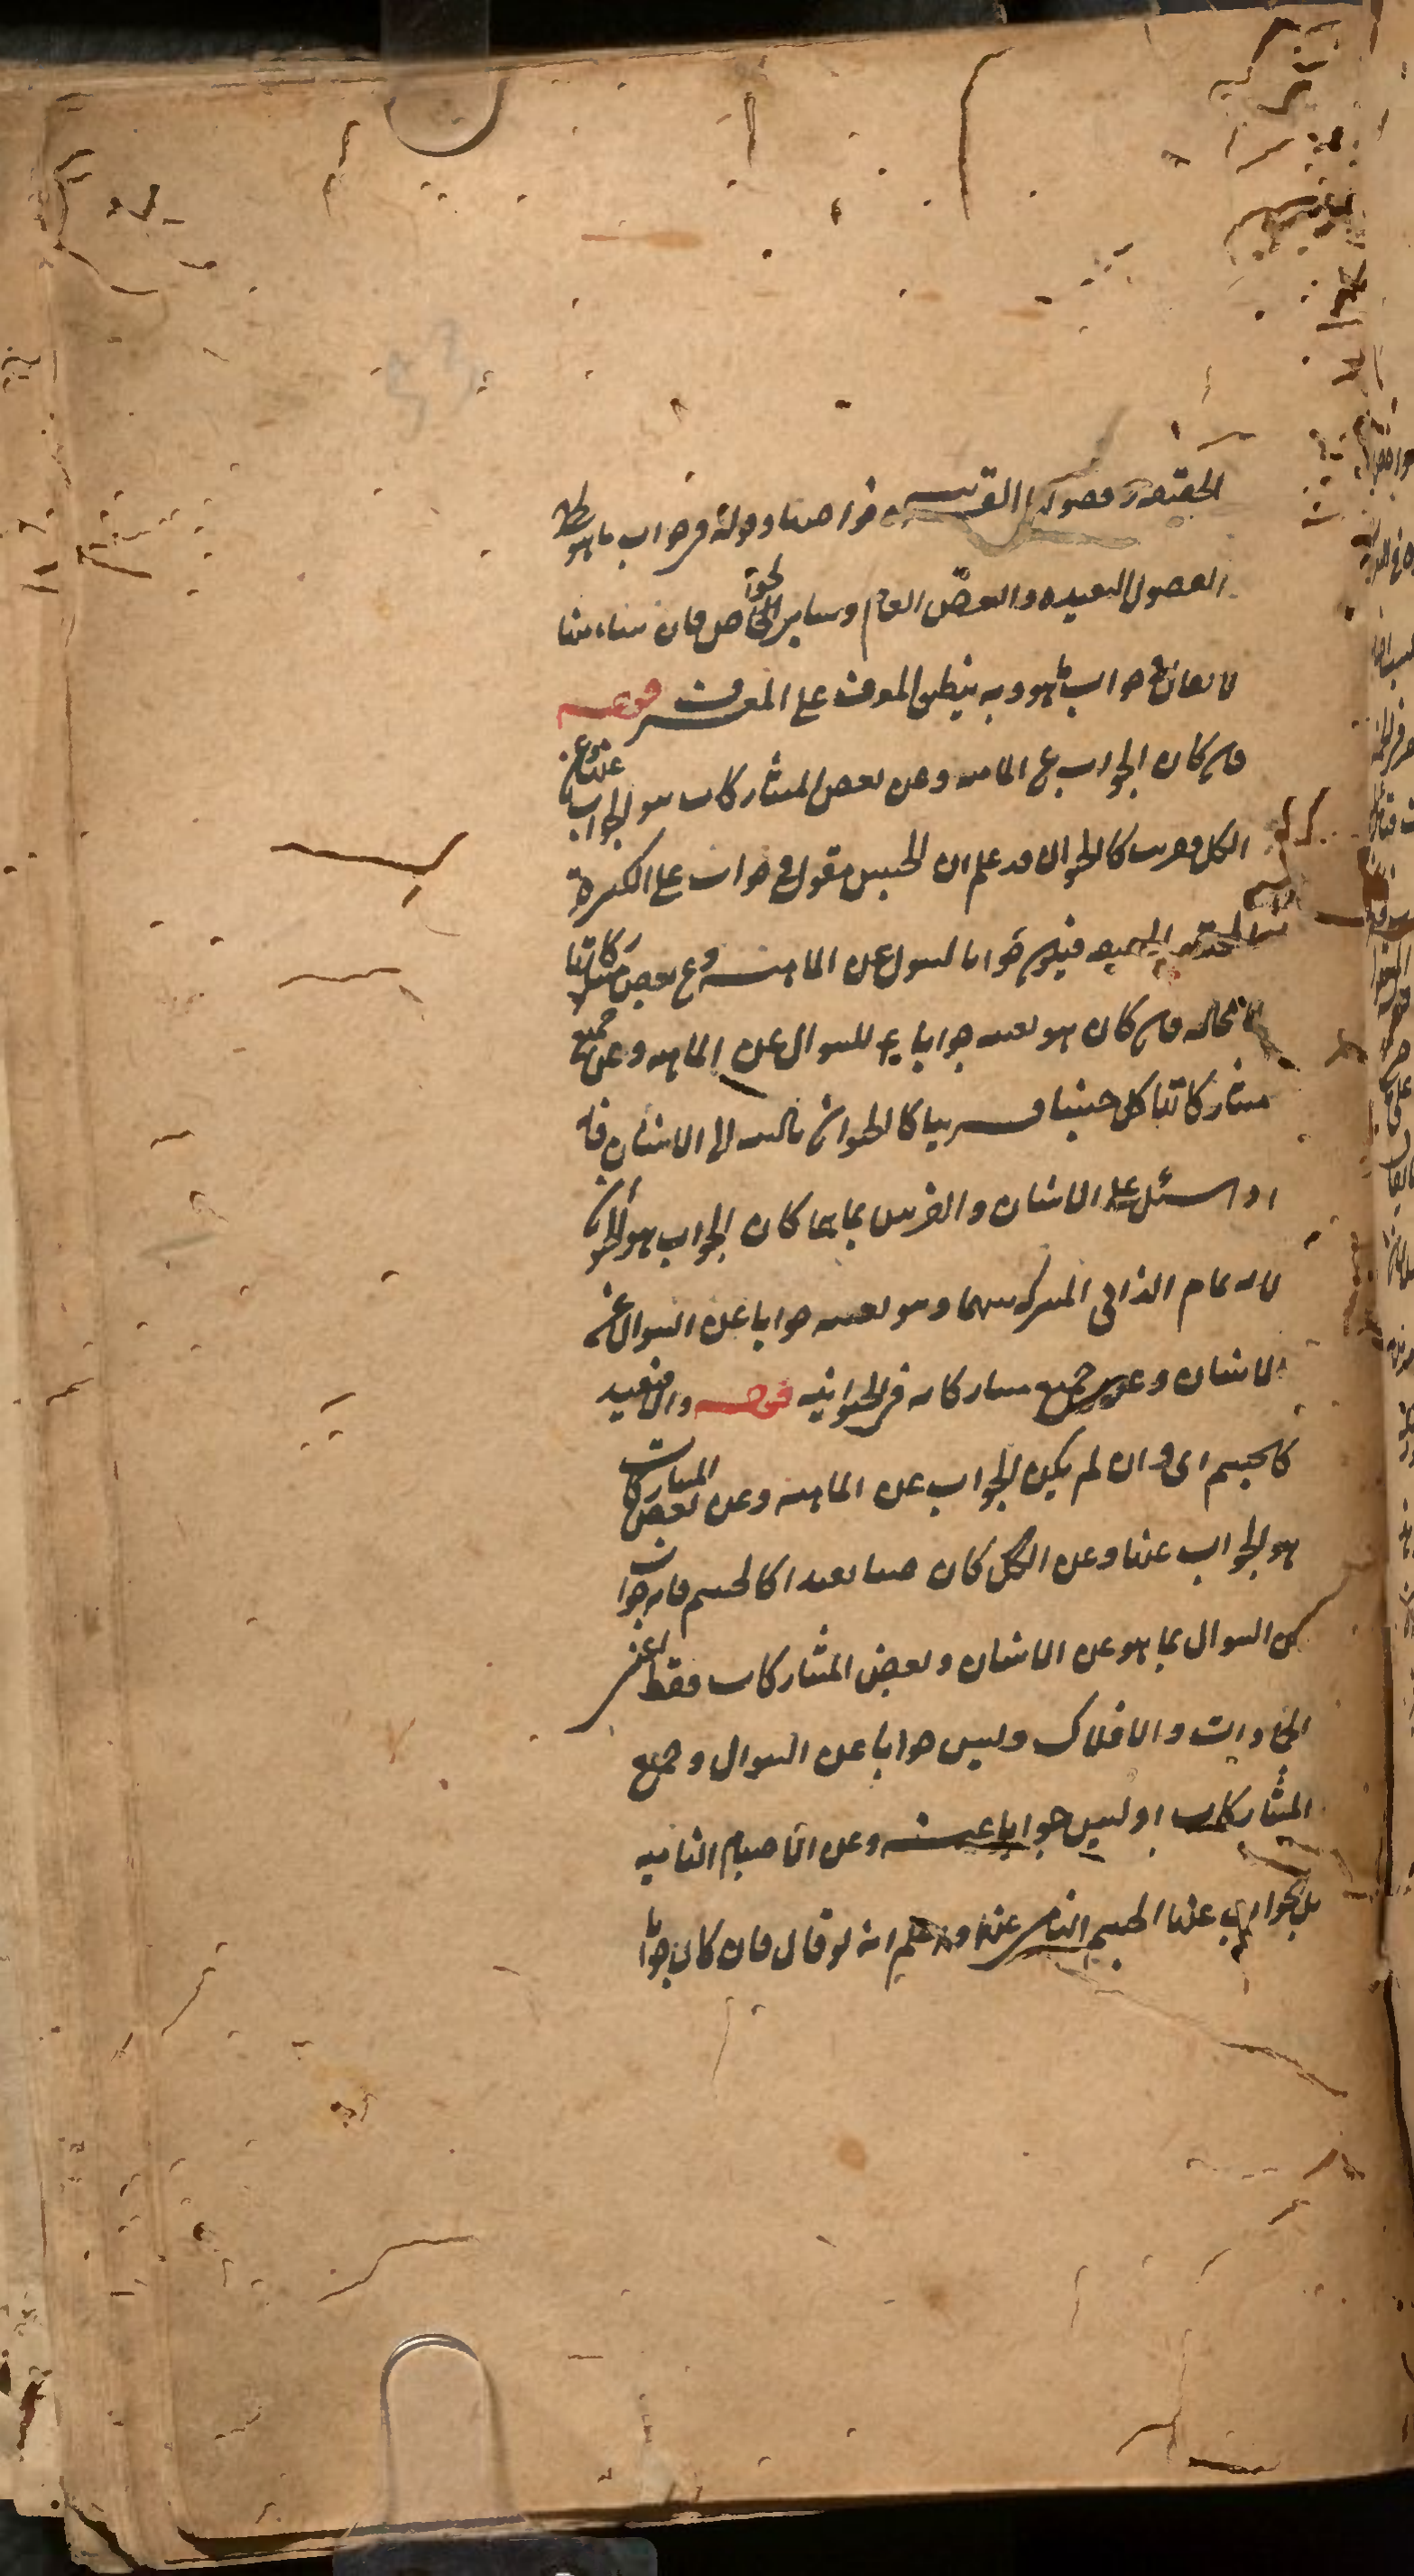 الحقيقة وفصولها القريبة فواصلنا وقوله في جواب ما هو
الفصول البعيدة والعرض العام وساير الخواص فان شيئا منها
لا يقال في جواب ما هو وبه ينطبق المعرف على المعرف قوله
فان كان الجواب عن الماهية وعن بعض المشاركات هو الجواب عنها وعن
الكل فقريب كالحيوان قد علم ان الجنس مقول في جواب على الكثرة
المختلفة الحقيقة فيكون جوابا للسؤال عن الماهية وعن بعض مشاركاتها
لا محالة فان كان هو بعينه جوابا للسؤال عن الماهية وعن جميع
مشاركاتها كان جنسا قريبا كالحيوان بالنسبة الى الانسان فانه
اذا سئل عن الانسان والفرس بما هما كان الجواب هو الحيوان
لانه تمام الذاتي المشترك بينهما وهو بعينه جوابا عن السوال عن
الانسان وعن جميع مشاركاته في الحيوانية قوله والا فبعيد
كالجسم اى وان لم يكن الجواب عن الماهية وعن بعض المشاركات
هو الجواب عنها وعن الكل كان جنسا بعيدا كالجسم فانه جواب
عن السوال بما هو عن الانسان وبعض المشاركات فقط اعنى
الجمادات والافلاك وليس جوابا عن السوال وجميع
المشاركات اذ ليس جوابا عنه وعن الاجسام النامية
بل الجواب عنها الجسم النامي وقد علم انه لو قال فان كان جوابا